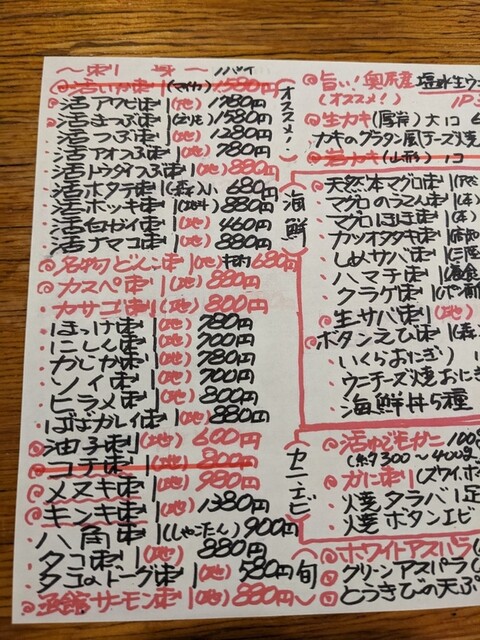 〜刺身〜 1パイ
活いか刺(マイカ)1580円
活アワビ刺(地)1780円
活まつぶ刺 1580円
活つぶ刺 1280円
活アオつぶ刺(地)780円
活トウダイつぶ刺(地)880円
活ホタテ刺(森) 680円
活ホッキ刺 880円
活白ガイ刺(地)460円
活ナマコ刺(地)880円
名物どんこ刺(地) 680円
カスペ刺(地)880円
カサゴ刺(地)800円
ほっけ刺(地)780円
にしん刺(地)700円
かじか刺(地)780円
ソイ刺(地)700円
ヒラメ刺(地)800円
ばばガレイ刺(地)880円
油子刺(地)600円
コチ刺(地)800円
メヌキ刺(地)980円
キンキ刺(地)1380円
八角刺(しゃこたん)900円
タコ刺(地)880円
タコのドーグ刺(地)580円
函館サーモン刺(地)880円
オススメ!
海鮮
カニ・エビ
旬
旨い!奥尻産 塩水生ウ
(オススメ!) 1P
生カキ(厚岸)大1コ
カキのグラタン風(チーズ焼
岩カキ(山形)1コ
天然本マグロ刺
マグロのうこん刺(本)
マグロほほ刺(本)
カツオタタキ刺
しめサバ刺(三陸
ハマチ刺
クラゲ刺
生サバ刺(地)
ボタンえび刺(森
いくらおにぎり
ウニチーズ焼おにぎ
海鮮丼5種
活ゆで毛ガニ 100g
(約300〜400g
かに刺(ズワイ,ボ
焼タラバ1足
焼ボタンエビ
ホワイトアスパラ
グリーンアスパラ
とうきびの天ぷ